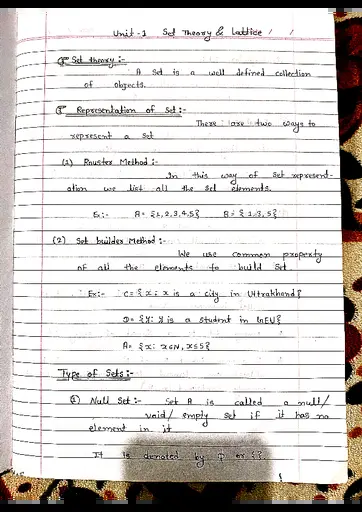 Unit-1 Set Theory & Lattice / /
Set theory :-
A set is a well defined collection
of objects.
Representation of Set :-
There are two ways to
represent a set
(1) Rouster Method :-
In this way of set represent-
ation we list all the set elements.
Ex:- A = {1,2,3,4,5} B = {1,3,5}
(2) Set builder Method :-
We use common property
of all the elements to build set.
Ex:- C = {x : x is a city in Uttrakhand}
D = {y : y is a student in GEU}
A = {x : x∈N, x≤5}
Type of Sets :-
(1) Null Set :- Set A is called a null/
void/ empty set if it has no
element in it
It is denoted by φ or {}.